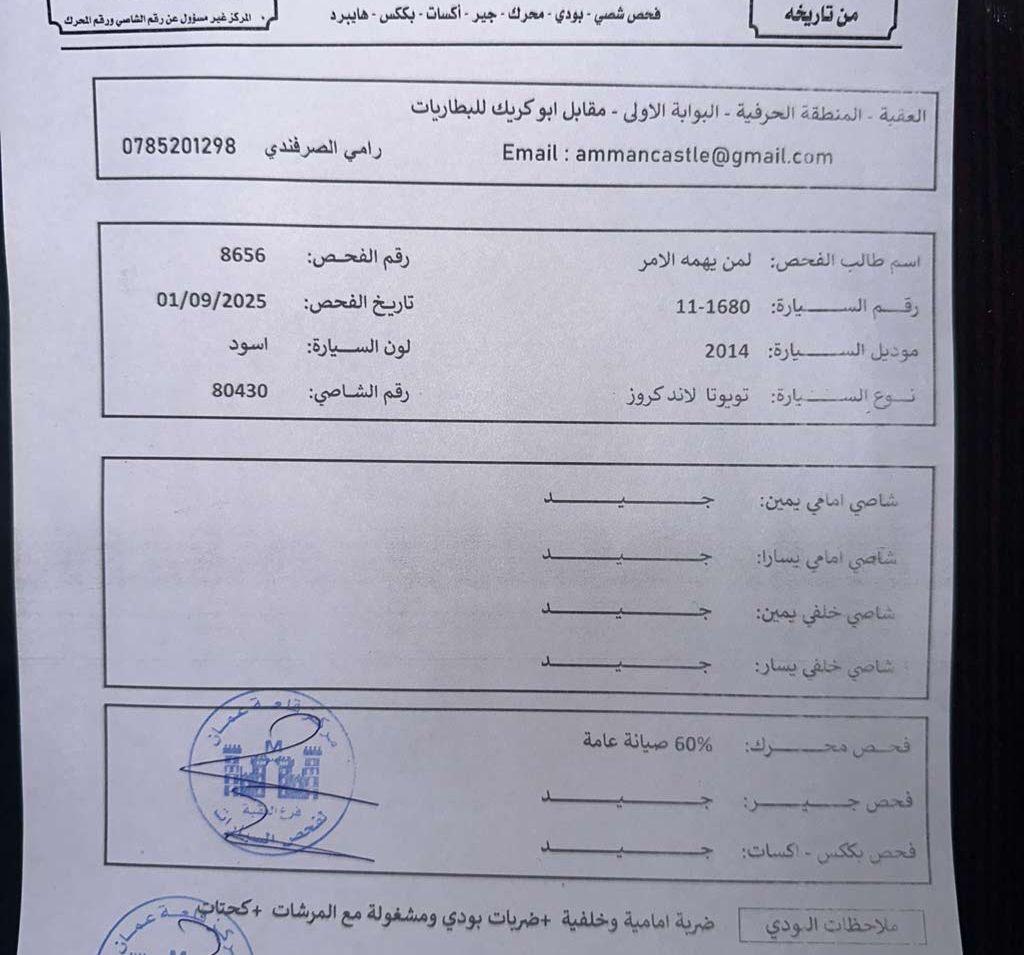 من تاريخه
فحص شصي - بودي - محرك - جير - أكسات - بككس - هايبرد
المركز غير مسؤول عن رقم الشاصي ورقم المحرك
العقبة - المنطقة الحرفية - البوابة الاولى - مقابل ابو كريك للبطاريات
Email : ammancastle@gmail.com رامي الصرفندي 0785201298
اسم طالب الفحص: لمن يهمه الامر رقم الفحص: 8656
رقم السيارة: 11-1680 تاريخ الفحص: 01/09/2025
موديل السيارة: 2014 لون السيارة: اسود
نوع السيارة: تويوتا لاند كروز رقم الشاصي: 80430
شاصي امامي يمين: جيد
شاصي امامي يسارا: جيد
شاصي خلفي يمين: جيد
شاصي خلفي يسار: جيد
فحص محرك: 60% صيانة عامة
فحص جير: جيد
فحص بككس - اكسات: جيد
مركز قلعة عمان
M
فرع العقبة
لفحص السيارات
ملاحظات الودي ضربة امامية وخلفية +ضربات بودي ومشغولة مع المرشات +كحتات
مركز قلعة عمان